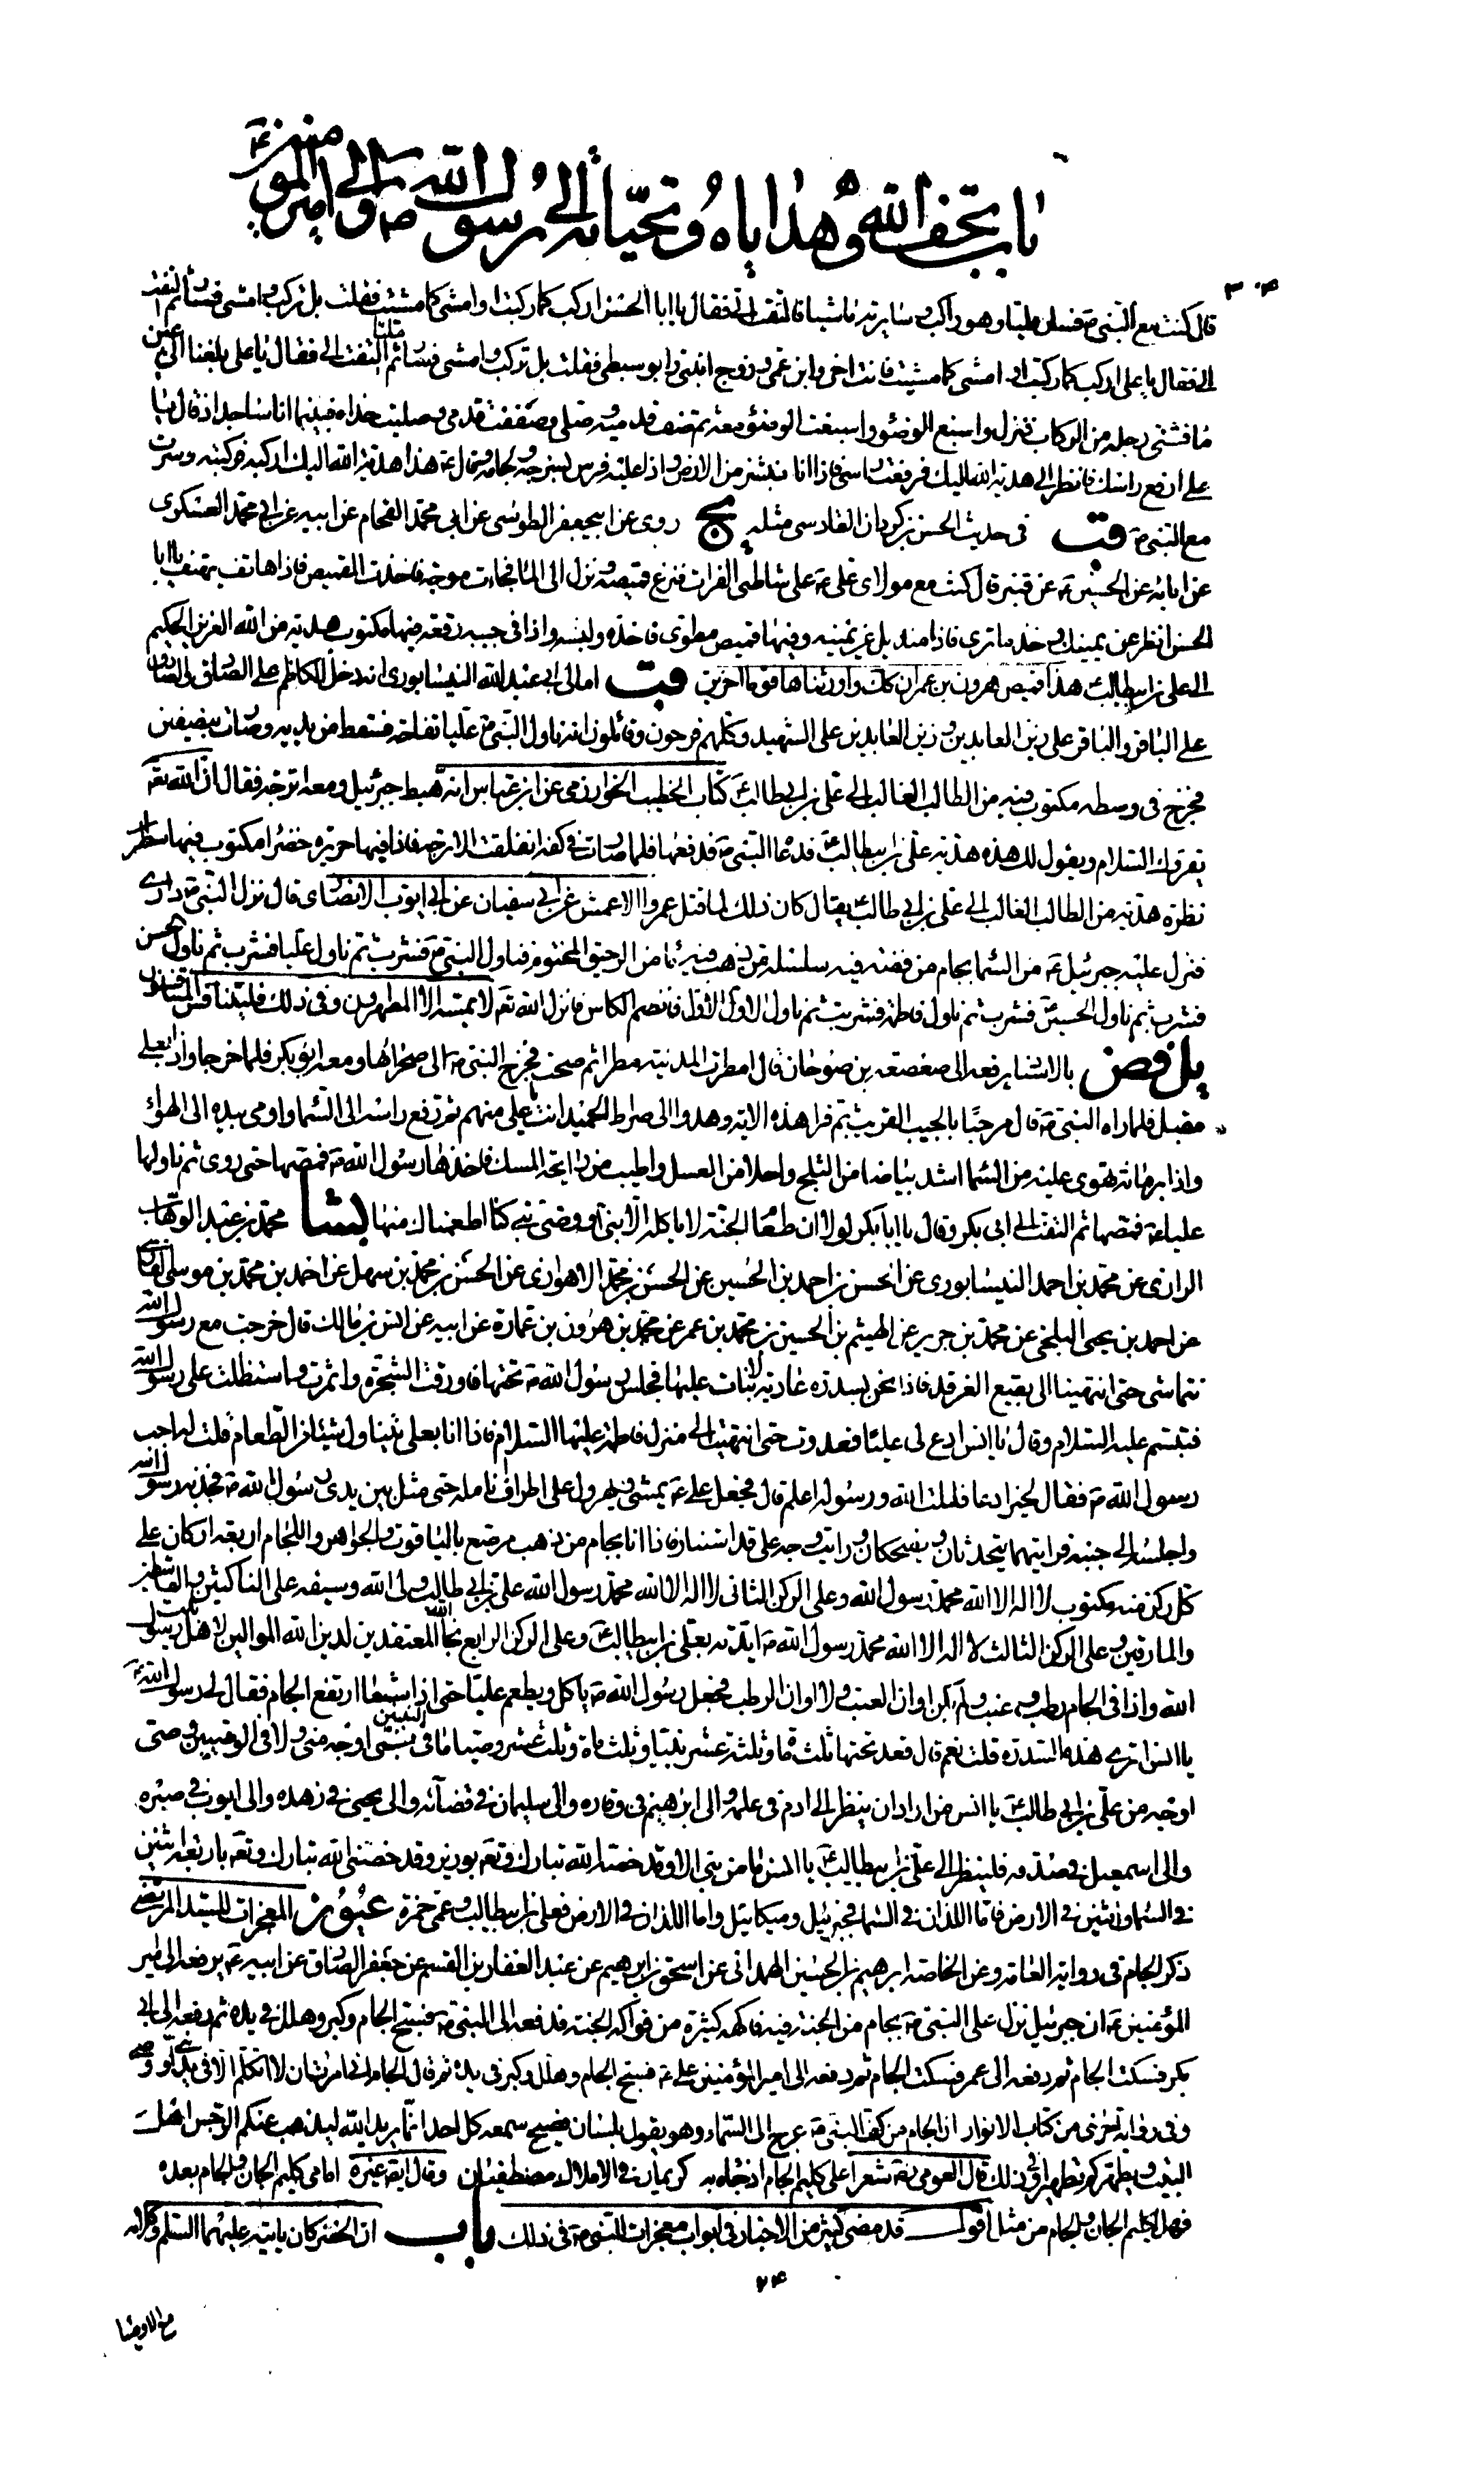 باب تحف الله وهداياه وتحياته الى رسول الله ص والى امير المؤمنين ع
٣٠٤
قال كنت مع النبي ص وهو راكب وسايرته ماشيا فالتفت الى فقال يا ابا الحسن اركب كما ركبت او امشى كما مشيت فقلت بل تركب وامشى فسار ثم التفت
الى فقال يا على اركب كما ركبت او امشى كما مشيت فانت اخى وابن عمى وزوج ابنتى وابو سبطى فقلت بل تركب وامشى فسار ثم التفت الى فقال يا على بلغنا الى عين
ماء فثنى رجله من الركاب فنزل واسبغ الوضوء واسبغت الوضوء معه ثم صف قدميه وصلى وصففت قدمى وصليت حذاه فبينما انا ساجد اذ قال يا
على ارفع راسك فانظر الى هدية الله اليك فرفعت راسى فاذا انا بنشز من الارض واذا عليه فرس بسرجه ولجامه وقال ع هذا هدية الله اليك اركبه فركبته وسرت
مع النبي ص قب فى حديث الحسن بن كردان الفادسى مثله يج روى عن ابى جعفر الطوسى عن ابى محمد الفحام عن ابيه عن ابى محمد العسكرى
عن ابائه عن الحسين ع عن قنبر قال كنت مع مولاى على ع على شاطى الفرات فنزع قميصه ونزل الى الماء فجاءت موجة فاخذت القميص فاذا هاتف يهتف يا ابا
الحسن انظر عن يمينك وخذ ما ترى فاذا منديل عن يمينه وفيها قميص مطوى فاخذه ولبسه واذا فى جيبه رقعة فيها مكتوب هدية من الله العزيز الحكيم
الى على بن ابيطالب هذا قميص هرون بن عمران كذلك واورثناها قوما اخرين قب امالى ابى عبد الله النيسابورى انه دخل الكاظم على الصادق والصادق
على الباقر والباقر على زين العابدين وزين العابدين على الشهيد وكلهم فرحون وقائلون انه ناول النبي ص عليا تفاحة فسقط من يديه وصارت بنصفين
فخرج فى وسطه مكتوب فيه من الطالب الغالب الى على بن ابى طالب ع كتاب الخطيب الخوارزمى عن ابن عباس انه هبط جبرئيل ومعه اترجة فقال ان الله تع
يقرؤك السلام ويقول لك هذه هدية على بن ابيطالب ع فدعاه النبي ص فدفعها فلما صارت فى كفه انفلقت الاترجة فاذا فيها حريرة خضراء مكتوب فيها سطران
نظرة هدية من الطالب الغالب الى على بن ابى طالب ع ويقال كان ذلك لما قتل عمروا الاعمش عن ابى سفيان عن ابى ايوب الانصارى قال نزل النبي ص دارى
فنزل عليه جبرئيل ع من السماء بجام من فضة فيه سلسلة من ذهب فيه ماء من الرحيق المختوم فناول النبي ص فشرب ثم ناول عليا فشرب ثم ناول الحسن
فشرب ثم ناول الحسين ع فشرب ثم ناول فاطمة فشربت ثم ناول الاول الاول فانضم الكاس فانزل الله تع لا يمسه الا المطهرون وفى ذلك فليتنافس المتنافسون
يل فض بالاسناد يرفعه الى صعصعة بن صوحان قال امطرت المدينة مطرا ثم صحت فخرج النبي ص الى صحرائها ومعه ابو بكر فلما خرجا واذا بعلى
مقبل فلما راه النبي ص قال مرحبا بالحبيب القريب ثم قرا هذه الاية وهدوا الى صراط الحميد انت يا على منهم ثم رفع راسه الى السماء واومى بيده الى الهواء
واذا برمانة تهوى عليه من السماء اشد بياضا من الثلج واحلا من العسل واطيب من رايحة المسك فاخذها رسول الله ص فمصها حتى روى ثم ناولها
عليا ع فمصها ثم التفت الى ابى بكر وقال يا ابا بكر لولا ان طعام الجنة لا ياكله الا نبى او وصى نبى كنا اطعمناك منها بشا محمد بن عبد الوهاب
الرازى عن محمد بن احمد النيسابورى عن الحسن بن احمد بن الحسين عن الحسن بن محمد الاهوازى عن الحسن بن محمد بن سهل عن احمد بن محمد بن موسى
عن احمد بن يحيى البلخى عن محمد بن جرير عن الهيثم بن الحسين بن محمد بن عمر عن محمد بن هرون بن عمارة عن ابيه عن انس بن مالك قال خرجت مع رسول الله
نتماشى حتى انتهينا الى بقيع الغرقد فاذا نحن بسدرة عارية لا نبات عليها فجلس رسول الله ص تحتها فاورقت الشجرة واثمرت واستظلت على رسول الله
فتبسم عليه السلام وقال يا انس ادع لى عليا فعدوت حتى انتهيت الى منزل فاطمة عليها السلام فاذا انا بعلى يتناول شيئا من الطعام قلت له اجب
رسول الله ص فقال لخير ادعا فقلت الله ورسوله اعلم قال فجعل على ع يمشى ويهرول على اطراف انامله حتى مثل بين يدى رسول الله ص فجذبه رسول الله
واجلسه الى جنبه فرايتهما يتحدثان ويضحكان ورايت وجه على قد استنار فاذا انا بجام من ذهب مرصع بالياقوت والجواهر وللجام اربعة اركان على
كل ركن منه مكتوب لا اله الا الله محمد رسول الله وعلى الركن الثانى لا اله الا الله محمد رسول الله على بن ابى طالب ولى الله وسيفه على الناكثين والقاسطين
والمارقين وعلى الركن الثالث لا اله الا الله محمد رسول الله ص ايدته بعلى بن ابيطالب ع وعلى الركن الرابع نجا المعتقدين لدين الله الموالين لاهل بيت رسول
الله واذا فى الجام رطب وعنب ولم يكن اوان العنب ولا اوان الرطب فجعل رسول الله ص ياكل ويطعم عليا حتى اذا شبعا ارتفع الجام فقال لى رسول الله ص
يا انس اترى هذه السدرة قلت نعم قال قعد تحتها ثلث مأة وثلثة عشر نبيا وثلث مأة وثلث عشر وصيا ما فى النبيين نبى اوجه منى ولا فى الوصيين وصى
اوجه من على بن ابى طالب ع يا انس من اراد ان ينظر الى ادم فى علمه والى ابرهيم فى وقاره والى سليمان فى قضائه والى يحيى فى زهده والى ايوب فى صبره
والى اسمعيل فى صدقه فلينظر الى على بن ابيطالب ع يا انس ما من نبى الا وقد خصه الله تبارك وتع بوزير وقد خصنى الله تبارك وتع باربعة اثنين
فى السماء واثنين فى الارض فاما اللذان فى السماء فجبرئيل وميكائيل واما اللذان فى الارض فعلى بن ابيطالب وعمى حمزة عيون المعجزات للسيد المرتضى
ذكر الجام فى رواية العامة وعن الخاصة ابرهيم بن الحسين الهمدانى عن اسحق بن ابرهيم عن عبد الغفار بن القسم عن جعفر الصادق عن ابيه ع يرفعه الى امير
المؤمنين ع ان جبرئيل نزل على النبي ص بجام من الجنة فيه فاكهة كثيرة من فواكه الجنة فدفعه الى النبي ص فسبح الجام وكبر وهلل فى يده ثم دفعه الى ابى
بكر فسكت الجام ثم دفعه الى عمر فسكت الجام ثم دفعه الى امير المؤمنين على ع فسبح الجام وهلل وكبر فى يده ثم قال الجام انى امرت ان لا اتكلم الا فى يد نبى او وصى
وفى رواية اخرى من كتاب الانوار ان الجام من كف النبي ص عرج الى السماء وهو يقول بلسان فصيح سمعه كل احد انما يريد الله ليذهب عنكم الرجس اهل
البيت ويطهركم تطهيرا وفى ذلك قال العونى ره شعرا على كليم الجام اذ جاءه به كريمان فى الاملاك مصطفيان وقال ايضا غيره امامى كليم الجان والجام بعده
فهل لكليم الجان والجام من مثل اقول قد مضى كثير من الاخبار فى ابواب معجزات النبي ص فى ذلك باب ان الخضر كان ياتيه عليهما السلم وكلامه
٢٤
مع الاوصيا